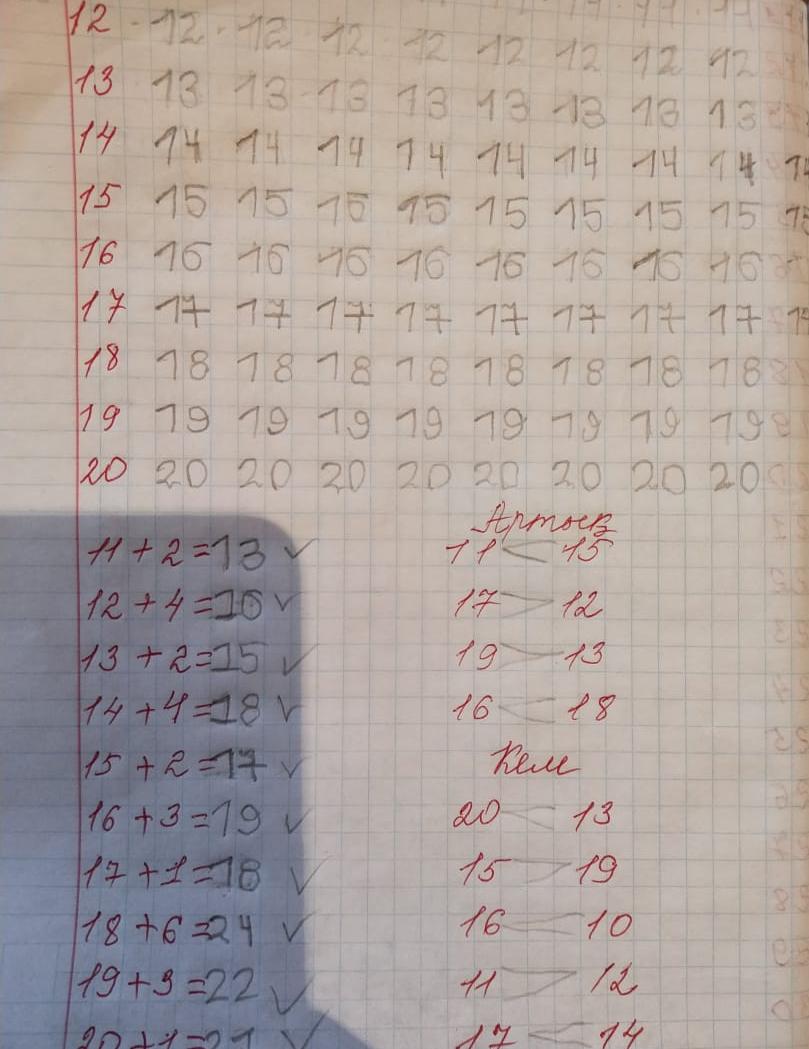 12 12 12 12 12 12 12 12 12
13 13 13 13 13 13 13 13 13
14 14 14 14 14 14 14 14 14 14
15 15 15 15 15 15 15 15 15
16 16 16 16 16 16 16 16 16
17 17 17 17 17 17 17 17 17
18 18 18 18 18 18 18 18 18
19 19 19 19 19 19 19 19 19
20 20 20 20 20 20 20 20 20
11 + 2 = 13 ✓
12 + 4 = 16 ✓
13 + 2 = 15 ✓
14 + 4 = 18 ✓
15 + 2 = 17 ✓
16 + 3 = 19 ✓
17 + 1 = 18 ✓
18 + 6 = 24 ✓
19 + 3 = 22 ✓
20 + 1 = 21 ✓
Артык
11 < 15
17 > 12
19 > 13
16 < 18
Кем
20 < 13
15 > 19
16 < 10
11 > 12
17 < 14